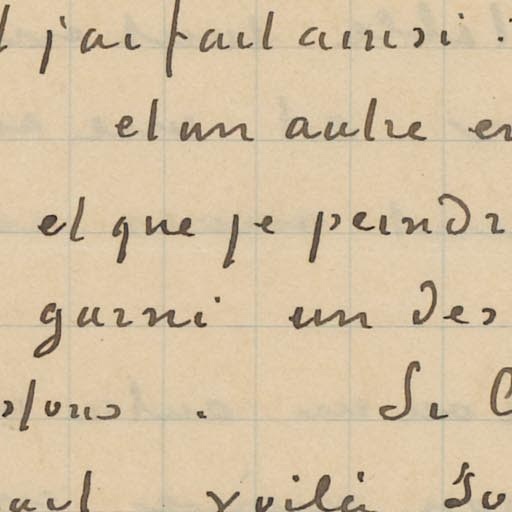 j'ai fait ainsi :
et un autre en
et que je peindr
garni un des
stons . Si C
voilà So